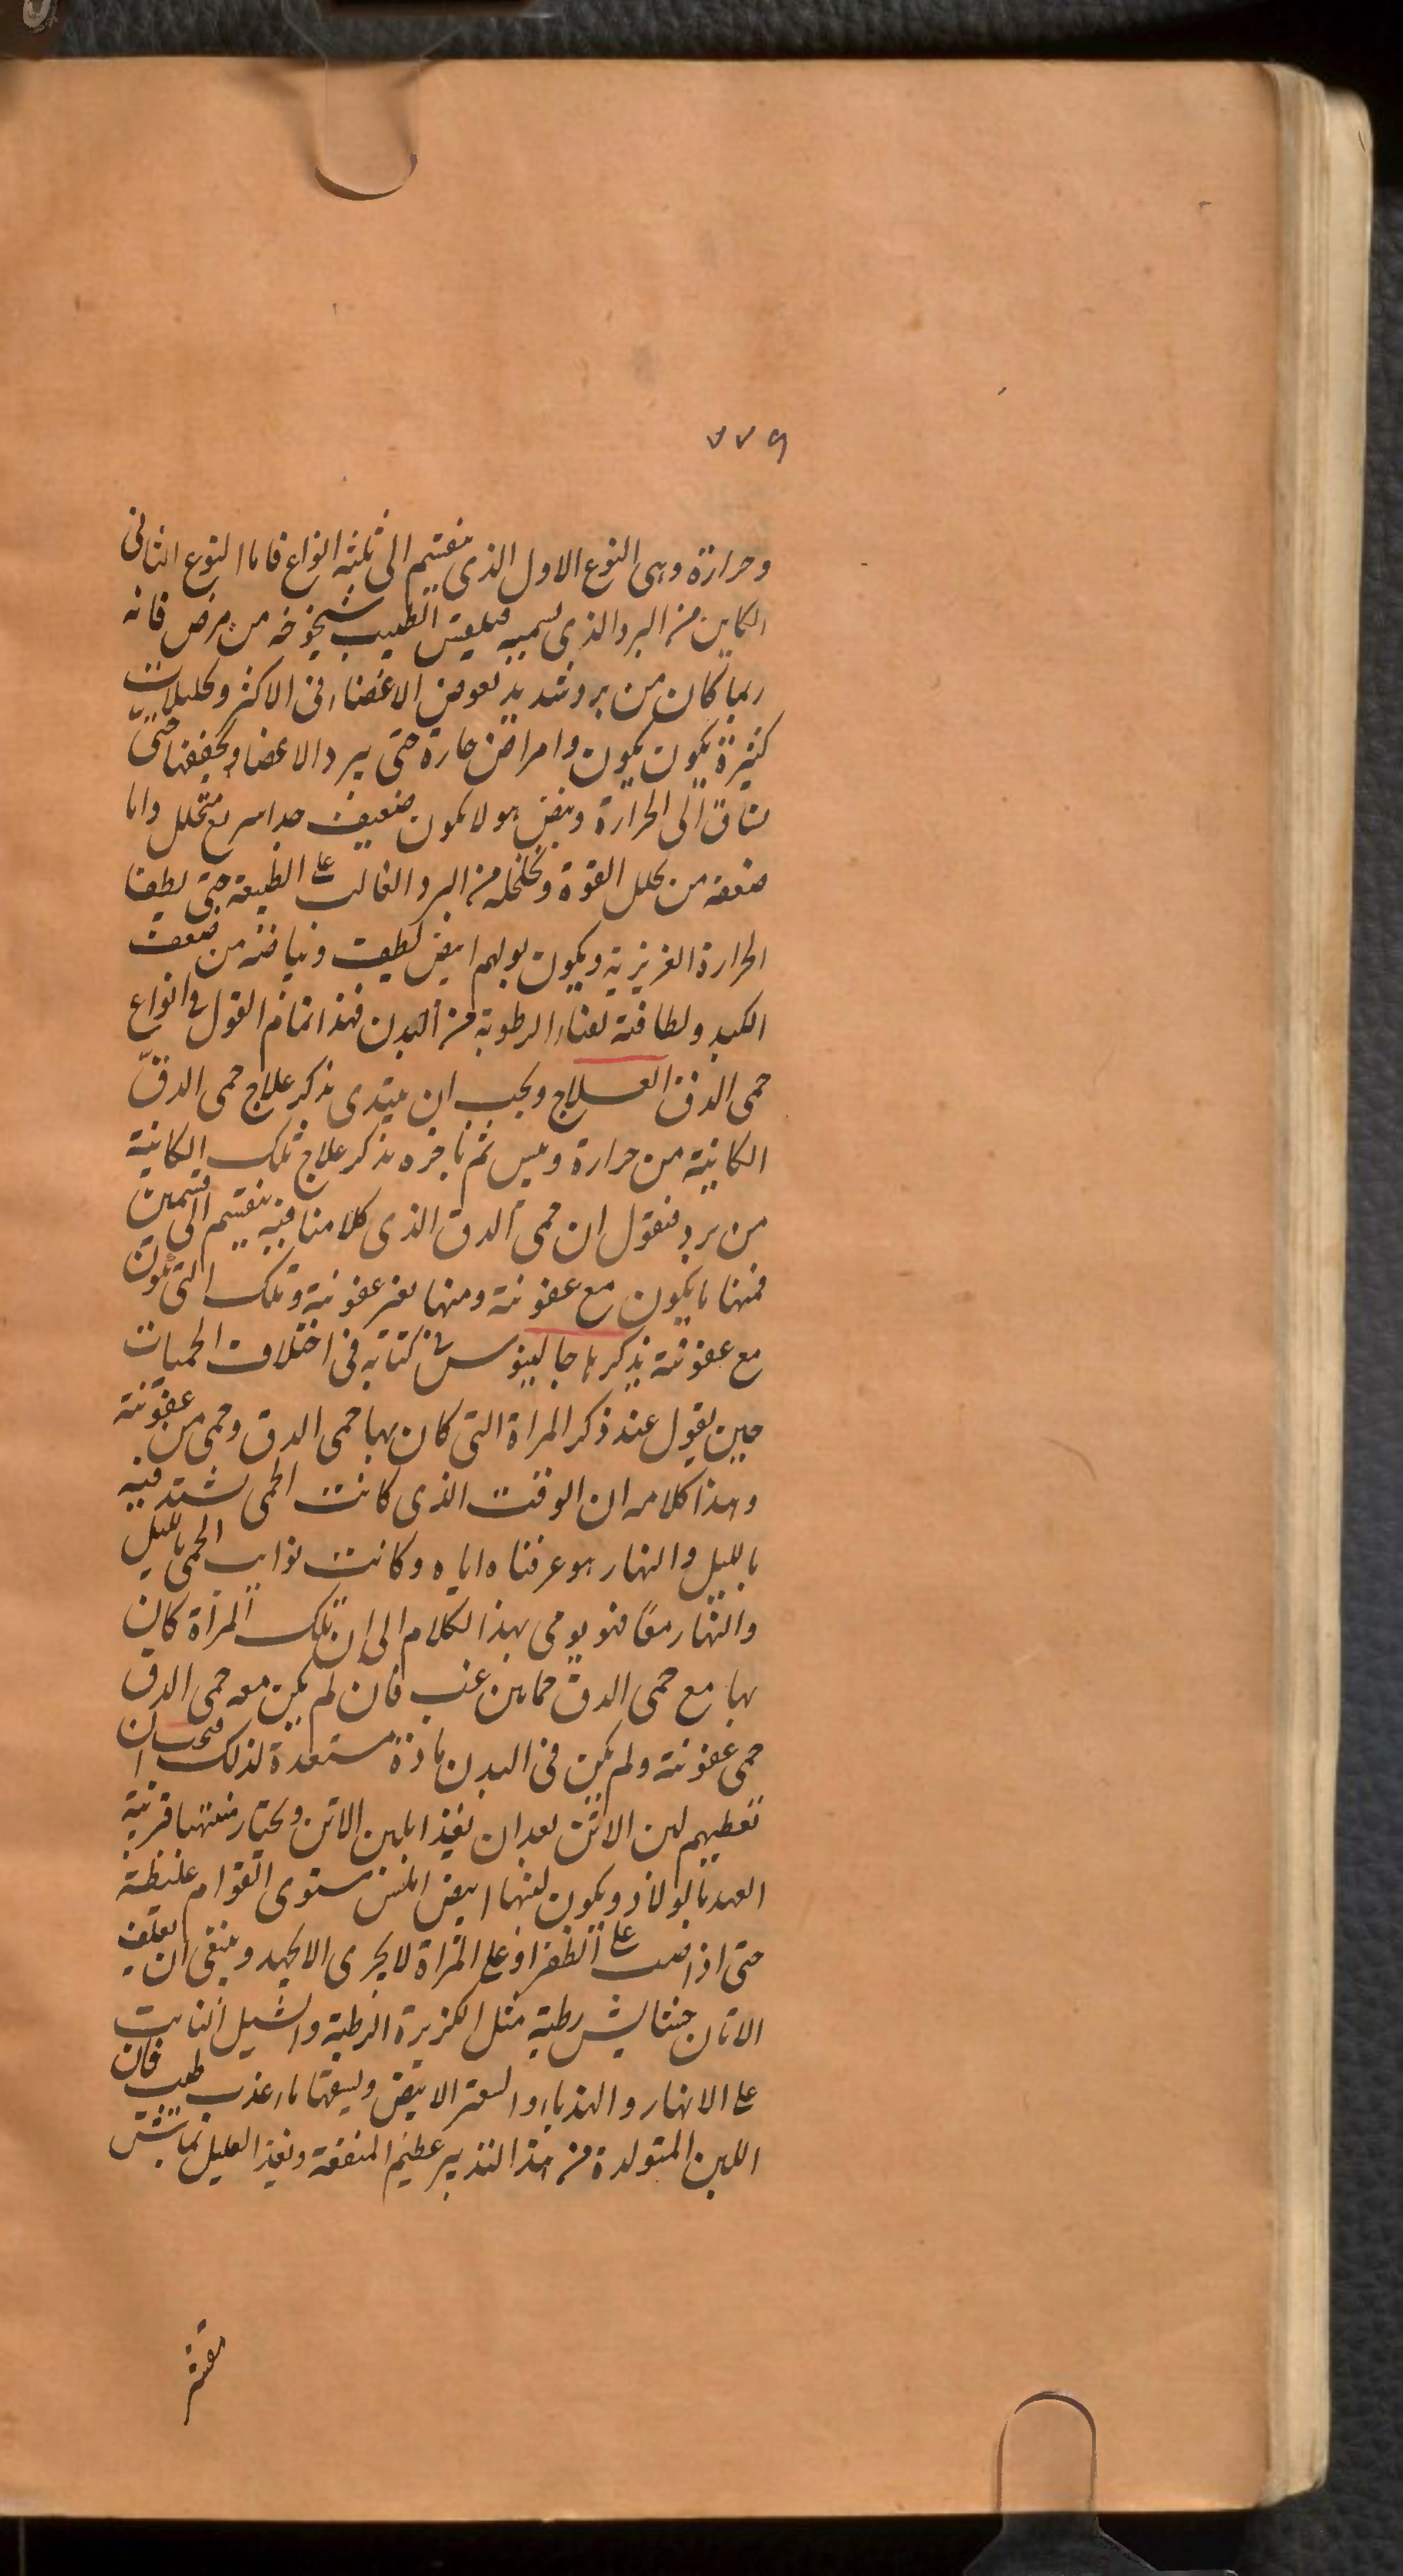 ٧٧٩
وحرارة وهى النوع الاول الذى ينقسم الى ثلثة انواع فاما النوع الثانى
الكاين من البرد الذى يسميه فيلغش الطبيب شيخوخه من مرض فانه
ربما كان من برد شديد الاعضاء فى الاكثر وتحليلات
كثيرة يكون يكون وامراض حارة حتى يبرد الاعضا ويجففها حتى
الى الحرارة ونبض هولا يكون ضعيف جدا سريع متخلل واما
ضعفه من تحلل القوة وتخلخله من البرد الغالب على الطبيعة حتى يطفا
الحرارة الغريزية ويكون بولهم ابيض لطيف وبياضه من ضعف
الكبد ولطافته لفناء الرطوبة من البدن فهذا تمام القول فى انواع
حمى الدق العلاج ويجب ان يبتدى بذكر علاج حمى الدقّ
الكانية من حرارة ويبس ثم ناخره بذكر علاج تلك الكانية
من برد فنقول ان حمى الدق الذى كلامنا فيه ينقسم الى قسمين
فمنها ما يكون مع عفونة ومنها بغير عفونة وتلك التى تكون
مع عفونة يذكرها جالينوس فى كتابه فى اختلاف الحميات
حين يقول عند ذكر المراة التى كان بها حمى الدق وحمى من عفونة
وهذا كلامه ان الوقت الذى كانت الحمى تشتد فيه
بالليل والنهار هو عرفناه اياه وكانت نوايب الحمى بالليل
والنهار معًا فهو يومى بهذا الكلام الى ان تلك المرأة كان
بها مع حمى الدق حماين غب فان لم يكن معه حمى الدق
حمى عفونة ولم يكن فى البدن مادة مستعدة لذلك فيجب ان
تعطيهم لبن الاتن بعد ان يغذا بلبن الاتن ويختار منها قريبة
العهد بالولاد ويكون لبنها ابيض املس مستوى القوام غليظة
حتى اذا صب على الظفر او على المراة لا يجرى الا بجهد وينبغى ان يعلف
الاتان حشايش رطبة مثل الكزبرة الرطبة والثيل النابت
على الانهار والهندباء والسعتر الابيض وليسقها ماء عذب طيب فان
اللبن المتولدة من هذا التدبير عظيم المنفعة ويغذ العليل بماش
مقشر